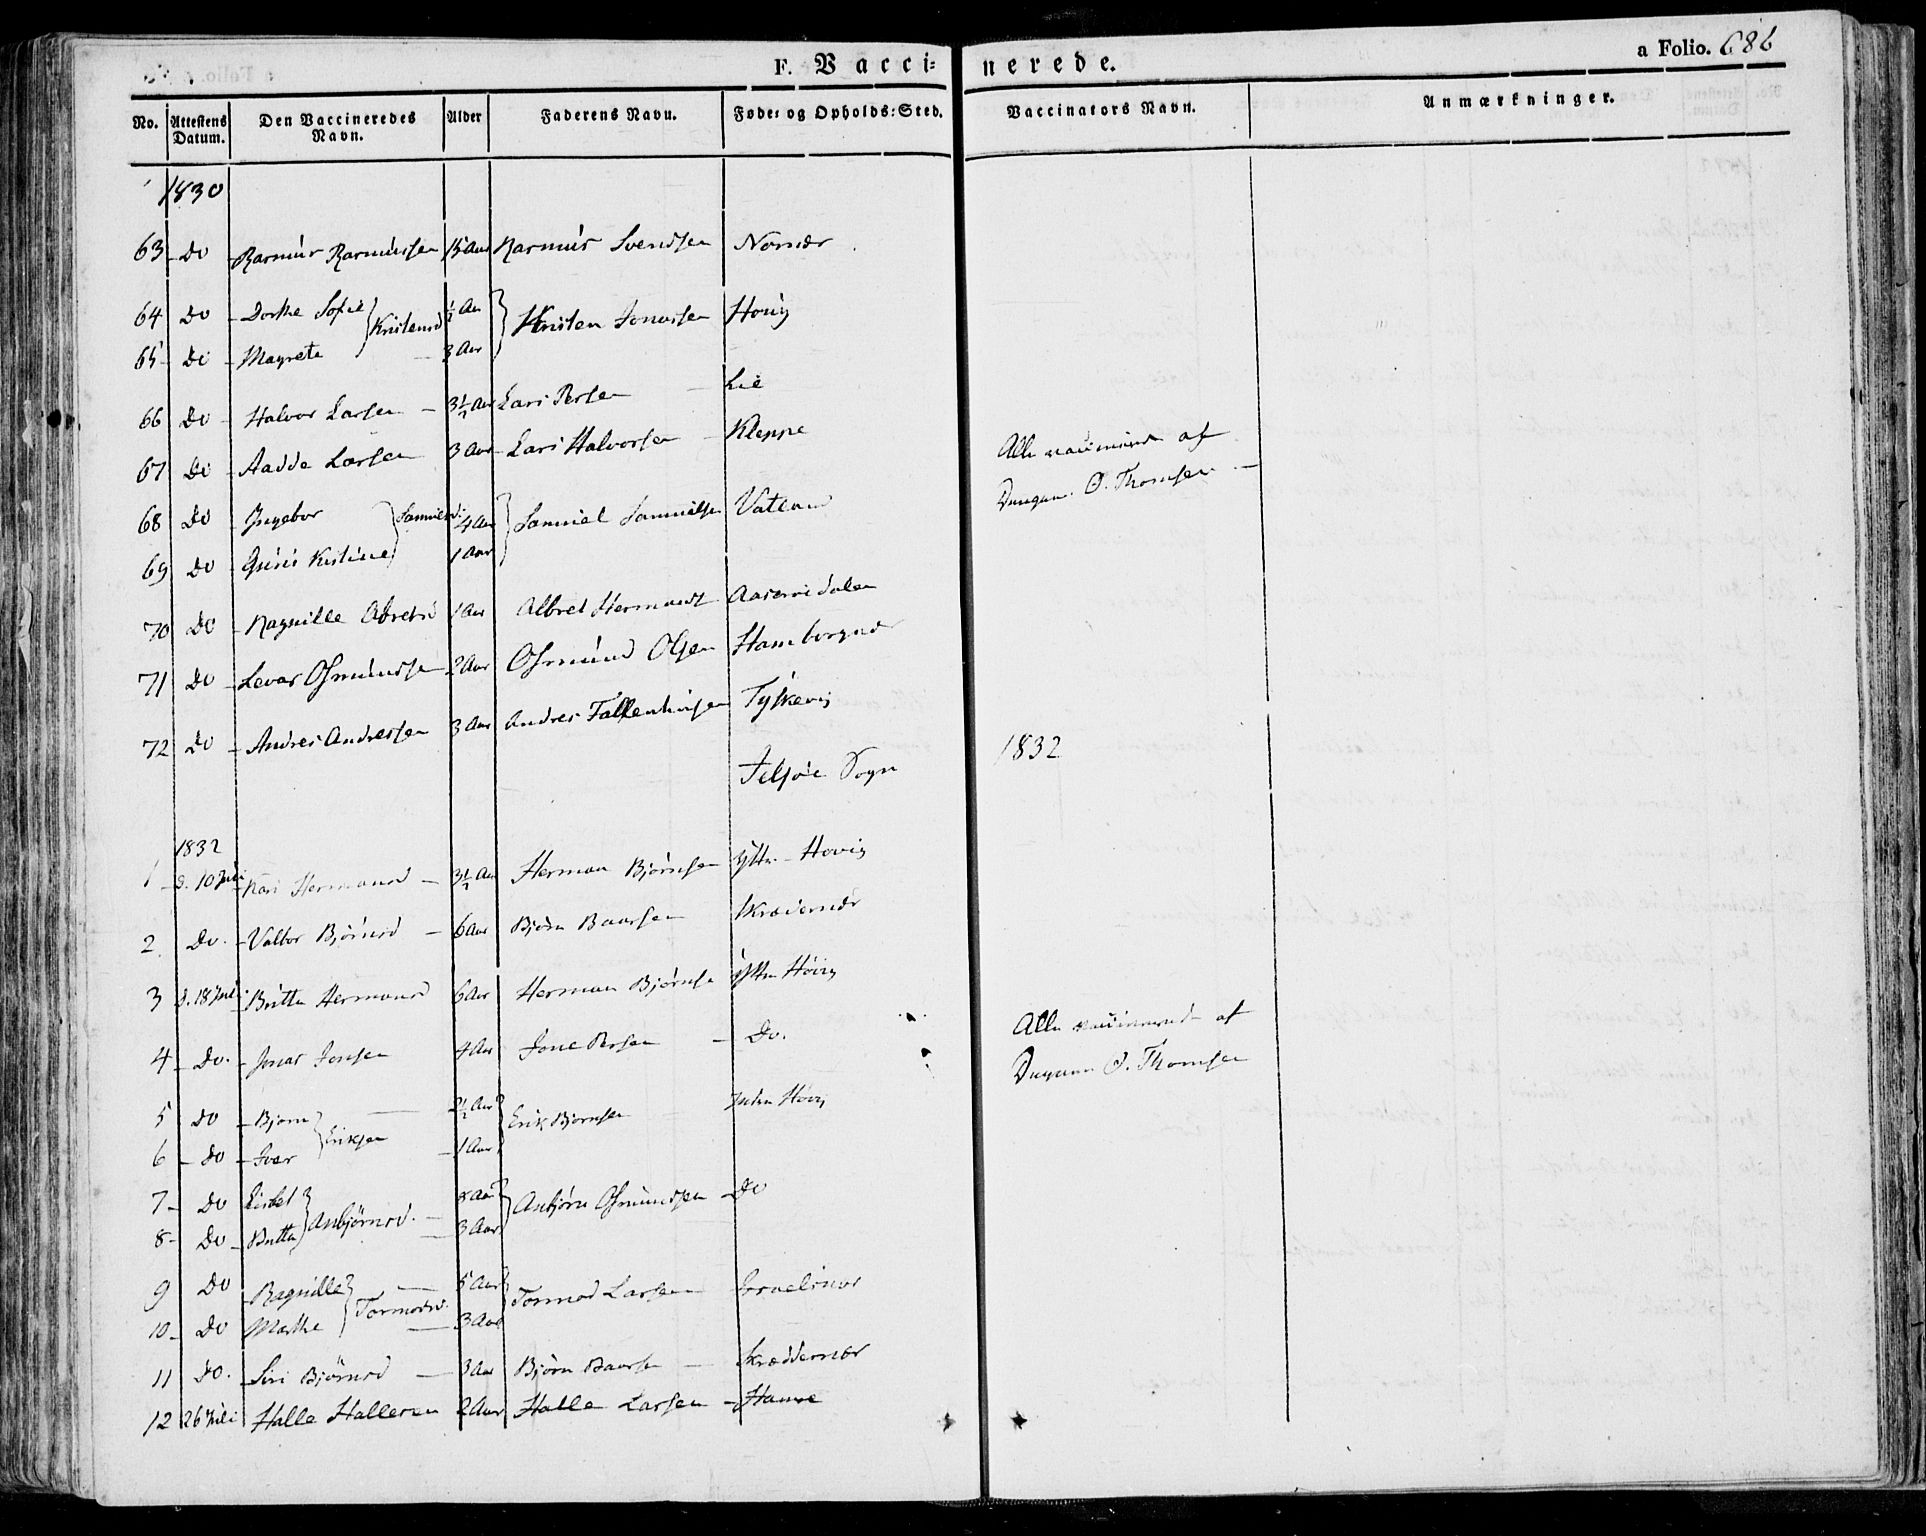 F. Vacci-
nerede.
a Folio. 686
No. Attestens Datum. Den Vaccineredes Navn. Alder Faderens Navn. Føde- og Opholds-Sted. Vaccinators Navn. Anmærkninger.
1830
63 Do Rasmus Rasmussen Aar Rasmus Svendsen
64 Do Dorthe Sofie Kristensd ½ Aar Kristen Jonassen Hovig
65 Do Magrete 3 Aar
66 Do Halvor Larsen 3½ Aar Lars Persen Lie
67 Do Aadde Larsen 3 Aar Lars Halvorsen Kleppe
68 Do Ingebor Samuelsd. 4 Aar Samuel Samuelsen
69 Do Kistine 1 Aar
70 Do Ragnille 1 Aar Albret
71 Do Levar Osmundsen 2 Aar Osmund Olsen
72 Do Andres Andressen 3 Aar Andres Tyskevig
Alle vaccinerede af
O. Thomsen
Sogn
1832
1832
1 d. 10 Juli Kari Hermansd 3½ Aar Herman Bjørnsen Yttre Hovig
2 Do. Valbor Bjørnsd 6 Aar Bjørn Baarsen Skrædernær
3 d. 18 Juli Britta Hermansd 6 Aar Herman Bjørnsen Yttre Høvig
4 Do. Jonas Jonsen 4 Aar Jone Persen Do.
Alle vaccinerede af
O. Thomsen
5 Do Bjørn Eriksen 2½ Aar Erik Bjørnsen Indre Høvig
6 Do Iver 1 Aar
7 Do Anbjørnsd. Aar Anbjørn Osmundsen Do
8 Do Britta 3 Aar
9 Do Ragnille Tormodsd. 5 Aar Tormod Larsen
10 Do Marthe 3 Aar
11 Do. Siri Bjørnsd 3 Aar Bjørn Baarsen Skræddernær
12 26 Juli Halle Hallesen 2 Aar Halle Larsen